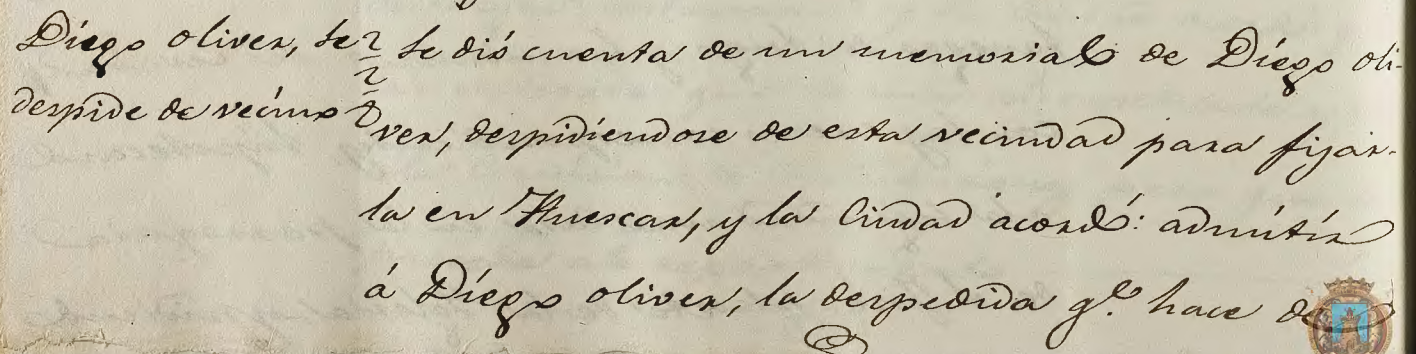 Diego oliver, se
despide de vecino
se dió cuenta de un memorial de Diego oli-
ver, despidiendose de esta vecindad para fijar-
la en Huescar, y la Ciudad acordó: admitir
á Diego oliver, la despedida q.e hace de